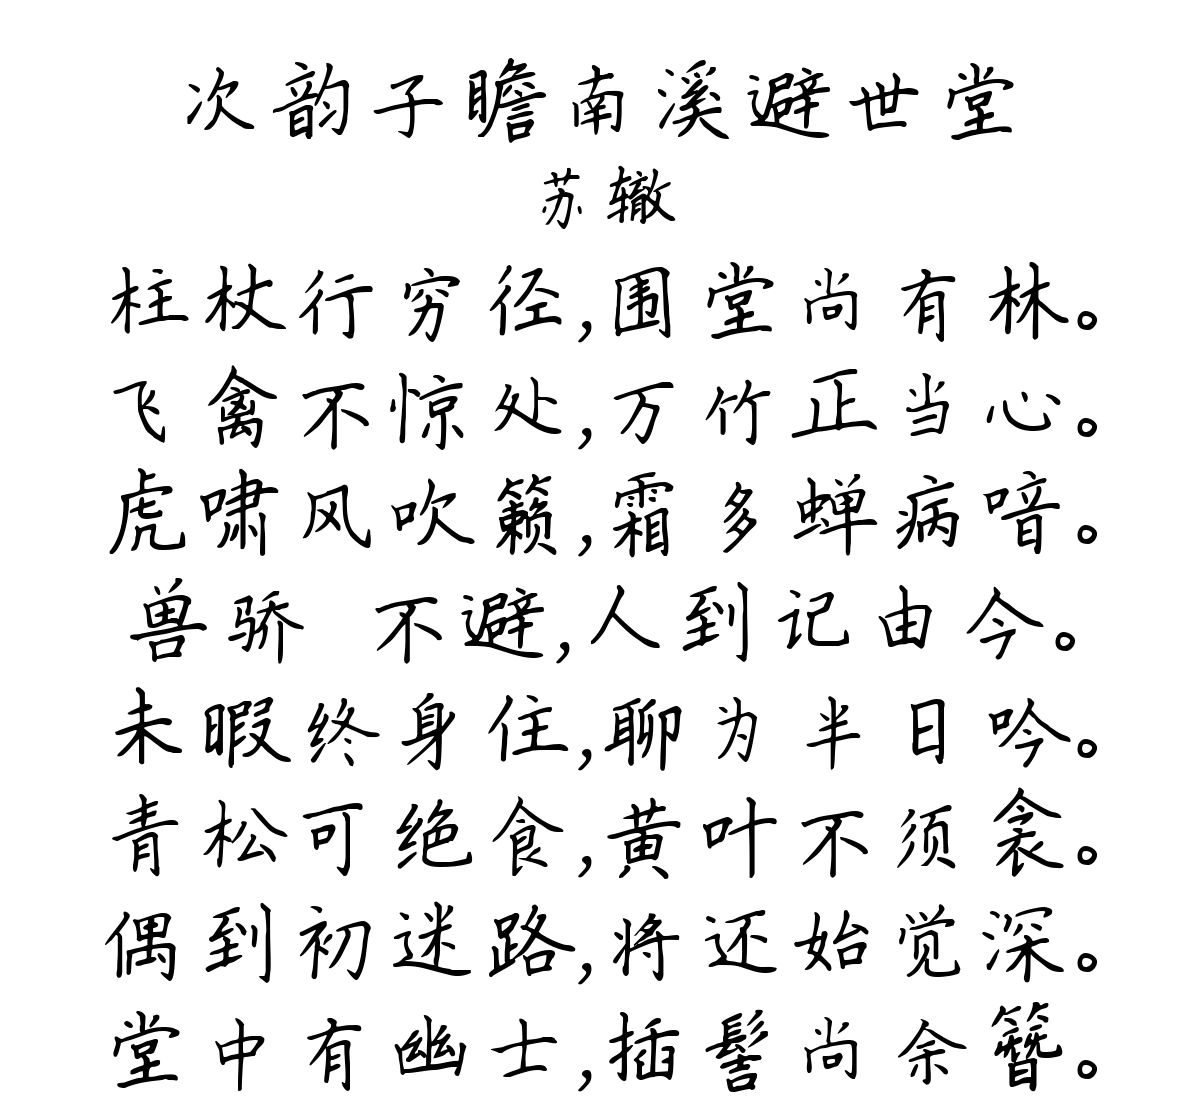 次韵子瞻南溪避世堂
苏辙
柱杖行穷径,围堂尚有林。
飞禽不惊处,万竹正当心。
虎啸风吹籁,霜多蝉病喑。
兽骄 不避,人到记由今。
未暇终身住,聊为半日吟。
青松可绝食,黄叶不须衾。
偶到初迷路,将还始觉深。
堂中有幽士,插髻尚余簪。